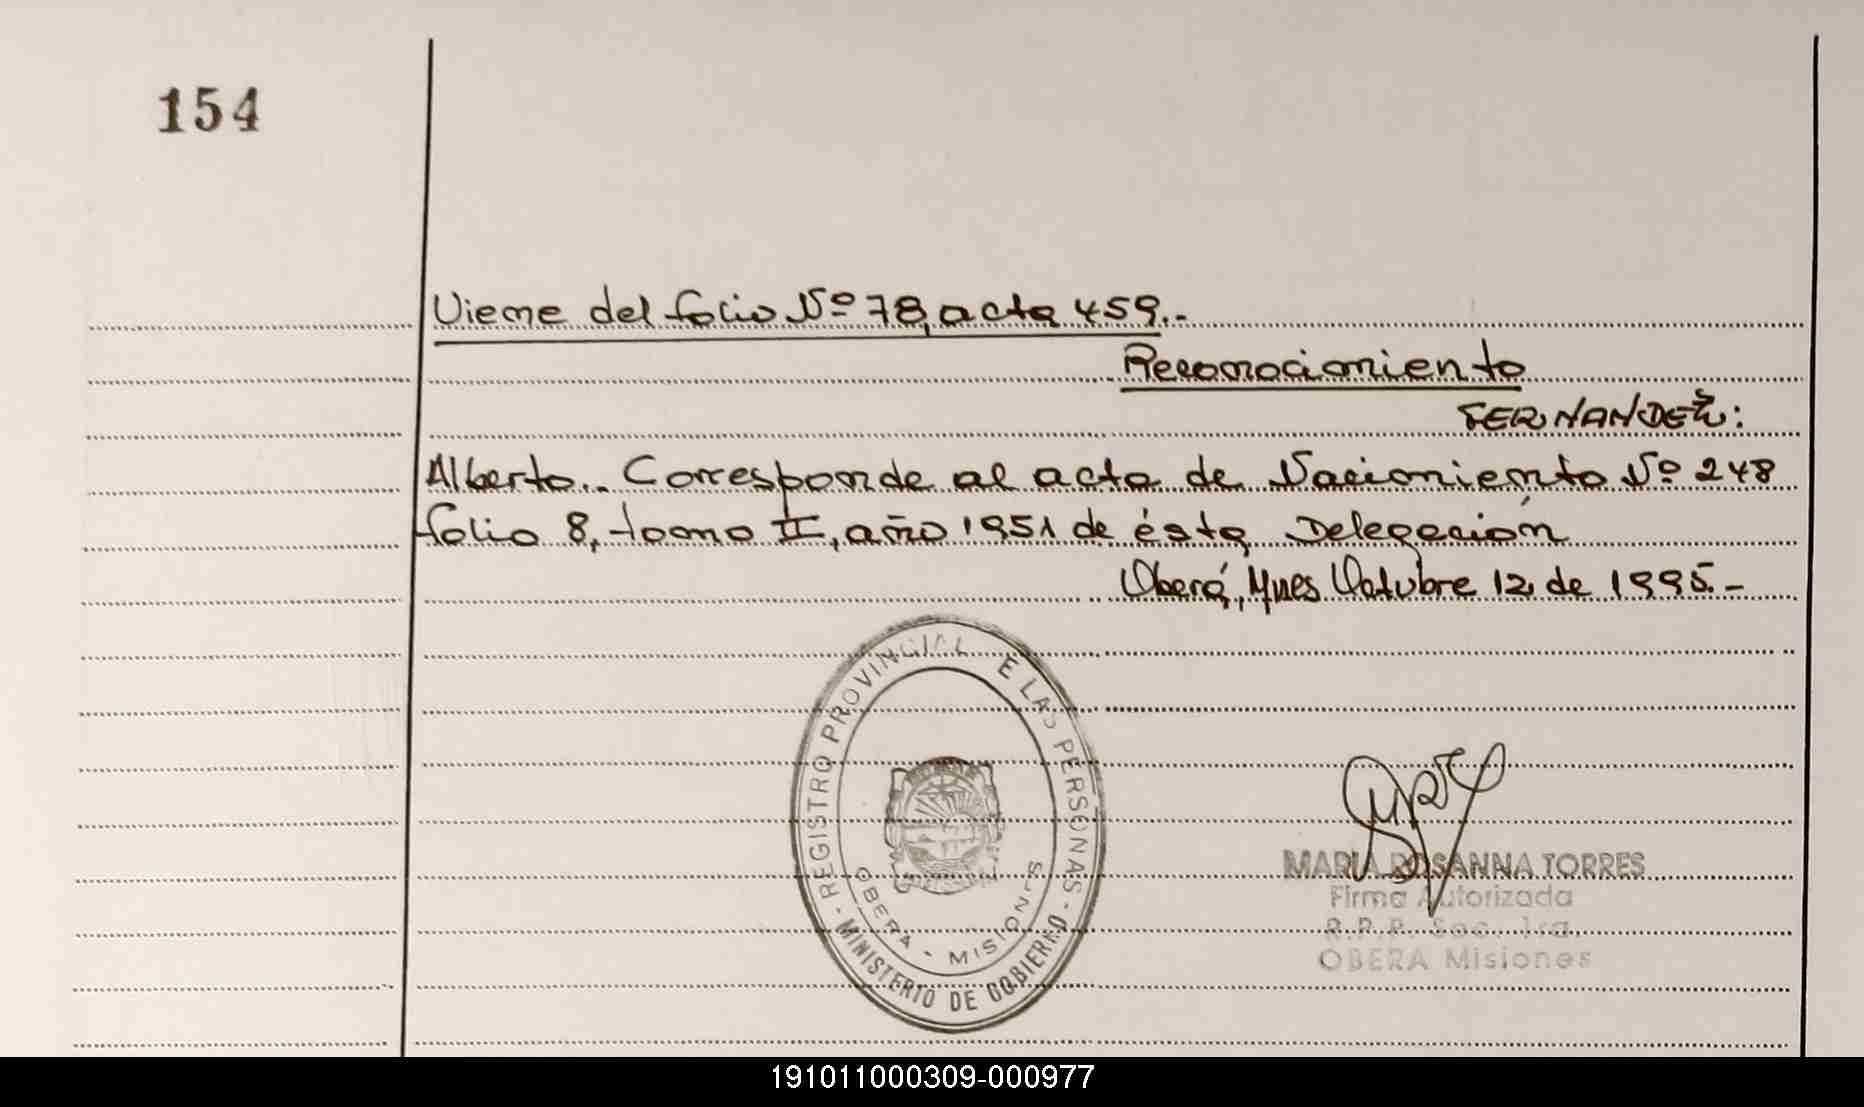 154
Viene del folio Nº 78, acta 459.-
Reconocimiento
FERNANDEZ:
Alberto.. Corresponde al acta de Nacimiento Nº 248
folio 8, tomo II, año 1951 de ésta Delegación
Oberá, Mnes Octubre 12 de 1995.-
REGISTRO PROVINCIAL E LAS PERSONAS
OBERA - MISIONES
- MINISTERIO DE GOBIERNO -
MARIA ROSANNA TORRES
Firma Autorizada
R.P.P. Sec. 1ra.
OBERA Misiones
191011000309-000977